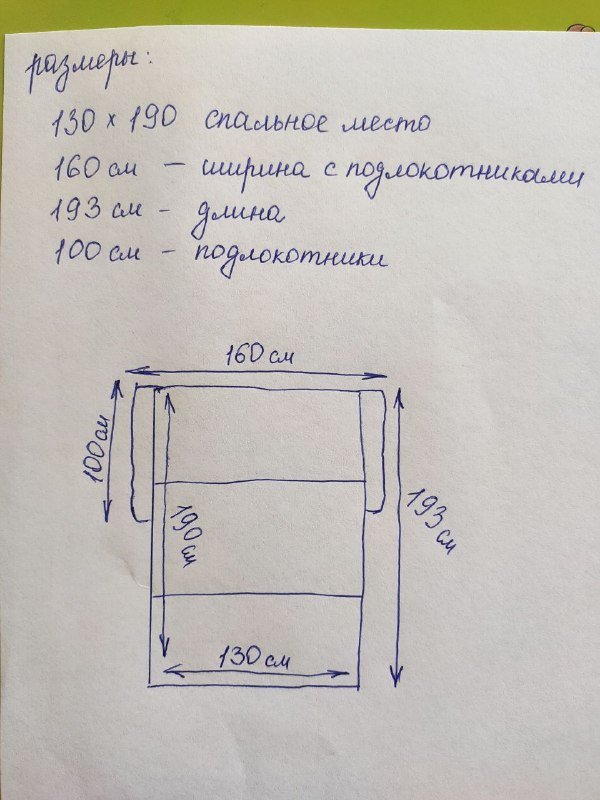 размеры:
130 × 190 спальное место
160 см – ширина с подлокотниками
193 см - длина
100 см - подлокотники
160 см
100 см
190 см
193 см
130 см